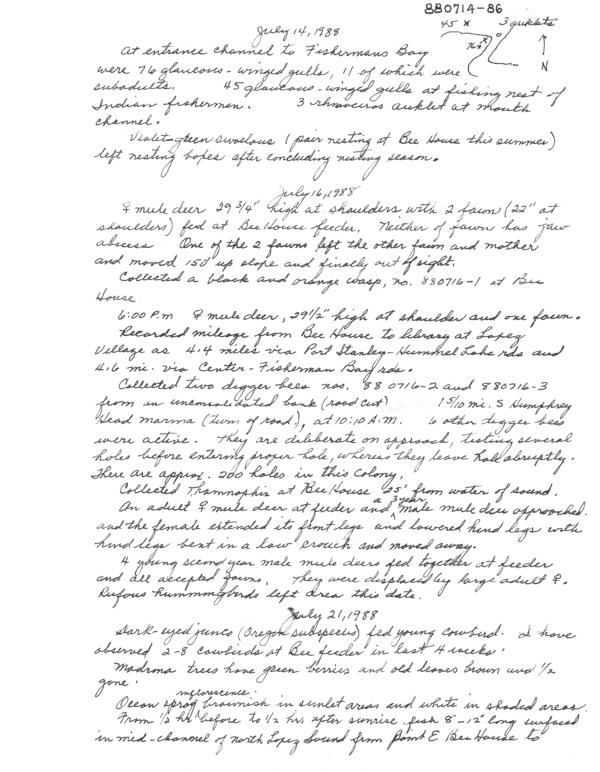 880714-86
July 14, 1988
45 x 3 auklets
76 x
N
At entrance channel to Fishermans Bay
were 76 glaucous-winged gulls, 11 of which were
subadults. 45 glaucous-winged gulls at fishing nest of
Indian fishermen. 3 rhinoceros auklet at mouth
channel.
Violet-green swallows (1 pair nesting at Bee House this summer)
left nesting boxes after concluding nesting season.
July 16, 1988
♀ mule deer 29 3/4" high at shoulders with 2 fawn (22" at
shoulders) fed at Bee House feeder. Neither of fawn has jaw
abscess. One of the 2 fawns left the other fawn and mother
and moved 150' up slope and finally out of sight.
Collected a black and orange wasp, no. 880716-1 at Bee
House
6:00 P.m ♀ mule deer, 29 1/2" high at shoulder and one fawn.
Recorded mileage from Bee House to library at Lopez
Village as 4.4 miles via Port Stanley-Hummel Lake rds and
4.6 mi. via Center-Fisherman Bay rds.
Collected two digger bees nos. 880716-2 and 880716-3
from an unconsolidated bank (road cut) 1 5/10 mi. S Humphrey
Head marina (turn of road), at 10:10 A.M. 6 other digger bees
were active. They are deliberate on approach, testing several
holes before entering proper hole, whereas they leave hole abruptly.
There are approx. 200 holes in this colony.
Collected Thamnophis at Bee House 25' from water of sound.
An adult ♀ mule deer at feeder and a 3 year male mule deer approached
and the female extended its front legs and lowered hind legs with
hind legs bent in a low crouch and moved away.
4 young second year male mule deers fed together at feeder
and all accepted fawns. They were displaced by large adult ♀.
Rufous hummingbirds left area this date.
July 21, 1988
Dark-eyed junco (Oregon subspecies) fed young cowbird. I have
observed 2-8 cowbirds at Bee feeder in last 4 weeks.
Madrona trees have green berries and old leaves brown and 1/2
gone.
Ocean spray inflorescence brownish in sunlet areas and white in shaded areas
From 1/2 hr before to 1/2 hr. after sunrise fish 8"-12" long surfaced
in mid-channel of north Lopez Sound from point E Bee House to